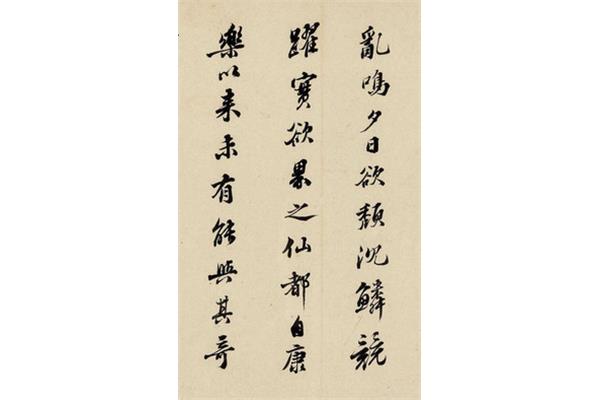 亂鳴夕日欲頹沈鱗競
躍實欲界之仙都自康
樂以来未有能與其奇